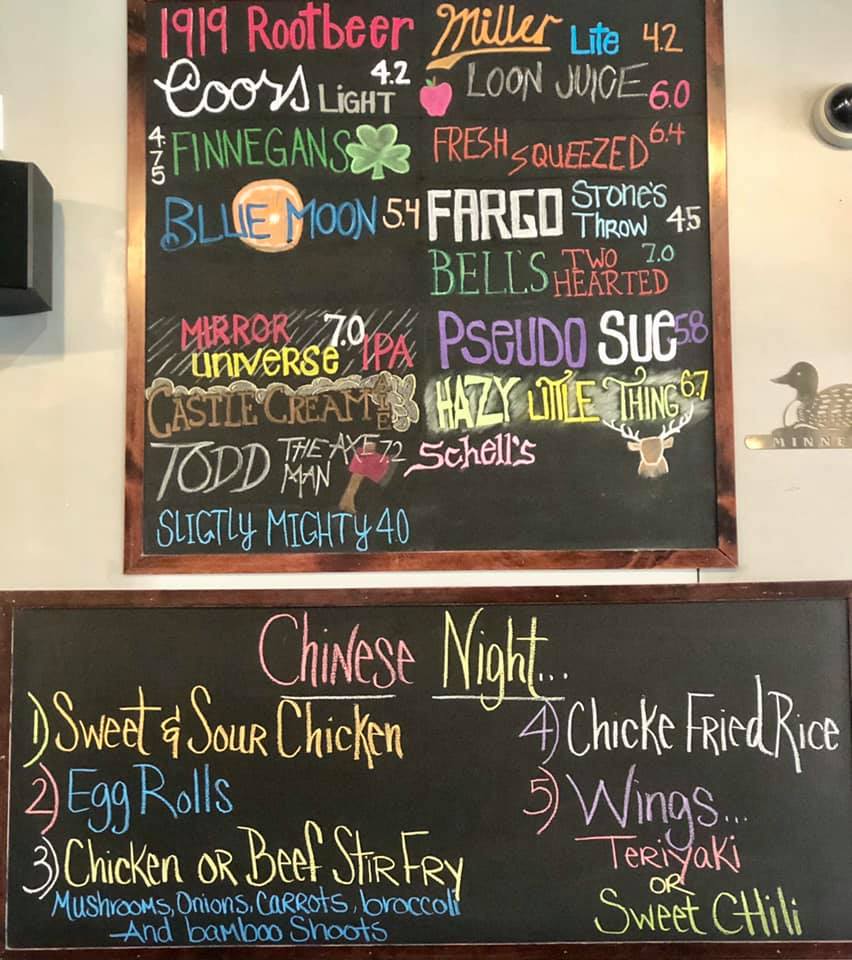 1919 Rootbeer
Miller Lite 4.2
Coors LIGHT 4.2
LOON JUICE 6.0
4.75 FINNEGANS
FRESH SQUEEZED 6.4
BLUE MOON 5.4
FARGO Stone's Throw 4.5
BELL'S TWO HEARTED 7.0
MIRROR universe 7.0 IPA
PSEUDO SUE 5.8
CASTLE CREAM ALE
HAZY LITTLE THING 6.7
TODD THE AXE MAN 7.2
Schell's
SLIGTLY MIGHTY 4.0
MINNE
Chinese Night...
1) Sweet & Sour Chicken
2) Egg Rolls
3) Chicken OR Beef Stir Fry
Mushrooms, Onions, Carrots, broccoli
And bamboo Shoots
4) Chicke Fried Rice
5) Wings...
Teriyaki
OR
Sweet CHili